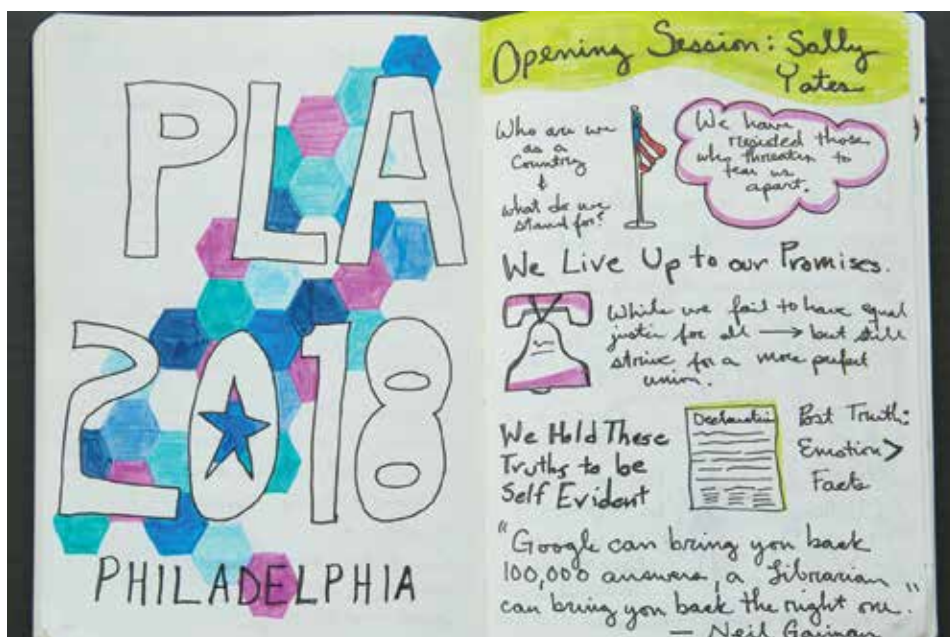 PLA
2018
PHILADELPHIA
Opening Session: Sally
Yates
Who are we
as a
Country
&
what do we
stand for?
We have
rejected those
who threaten to
tear us
apart.
We Live Up to our Promises.
While we fail to have equal
justice for all → but still
strive for a more perfect
union.
We Hold These
Truths to be
Self Evident
Declaration
Post Truth:
Emotion >
Facts
"Google can bring you back
100,000 answers, a Librarian
can bring you back the right one."
— Neil Gaiman